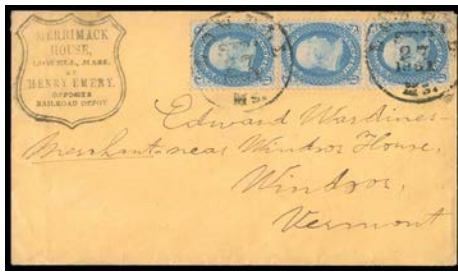 MERRIMACK
HOUSE,
LOWELL, MASS.
BY
HENRY EMERY,
OPPOSITE
RAILROAD DEPOT
27
1861
MS.
MS.
Edward Wardines
Merchant near Windsor House,
Windsor,
Vermont